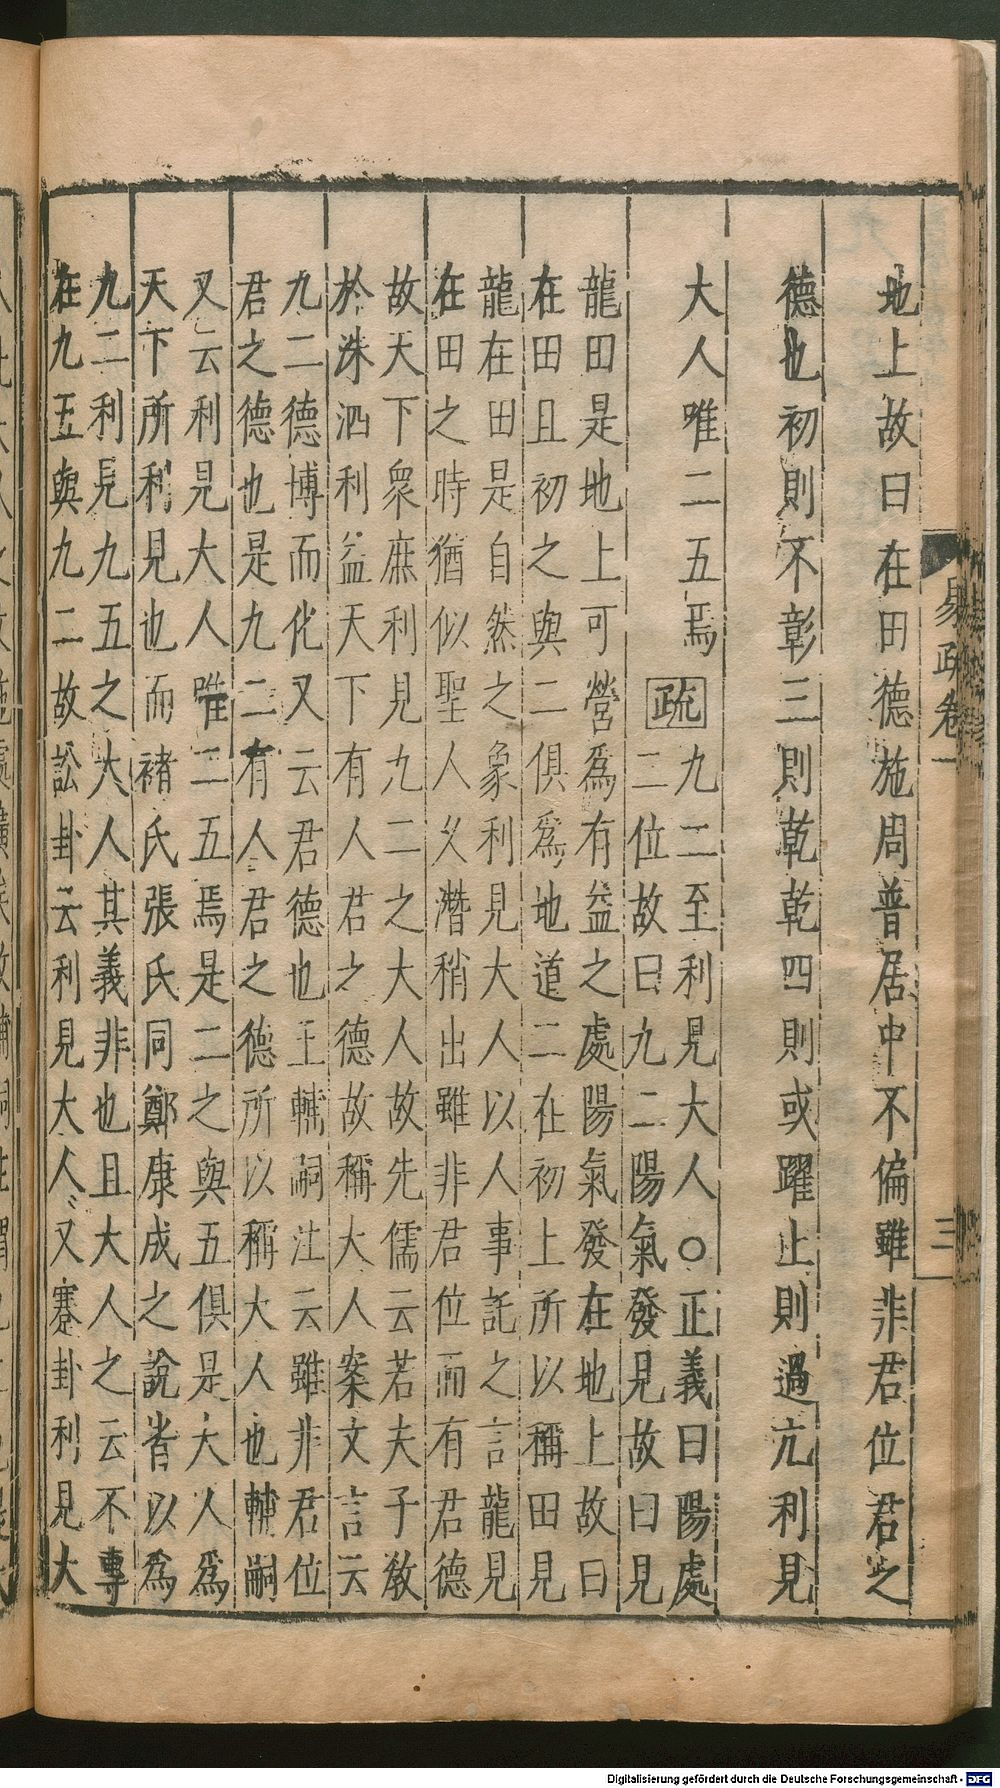 地上故曰在田德施周普居中不偏雖非君位君之
德也初則不彰三則乾乾四則或躍上則過亢利見
大人唯二五焉
疏
九二至利見大人○正義曰陽處
二位故曰九二陽氣發見故曰見
龍田是地上可營爲有益之處陽氣發在地上故曰
在田且初之與二俱爲地道二在初上所以稱田見
龍在田是自然之象利見大人以人事託之言龍見
在田之時猶似聖人乆潛稍出雖非君位而有君德
故天下衆庶利見九二之大人故先儒云若夫子敎
於洙泗利益天下有人君之德故稱大人案文言云
九二德博而化又云君德也王輔嗣注云雖非君位
君之德也是九二有人君之德所以稱大人也輔嗣
又云利見大人唯二五焉是二之與五俱是大人爲
天下所利見也而褚氏張氏同鄭康成之說皆以爲
九二利見九五之大人其義非也且大人之云不專
在九五與九二故訟卦云利見大人又蹇卦利見大
易疏卷一
三
Digitalisierung gefördert durch die Deutsche Forschungsgemeinschaft - DFG